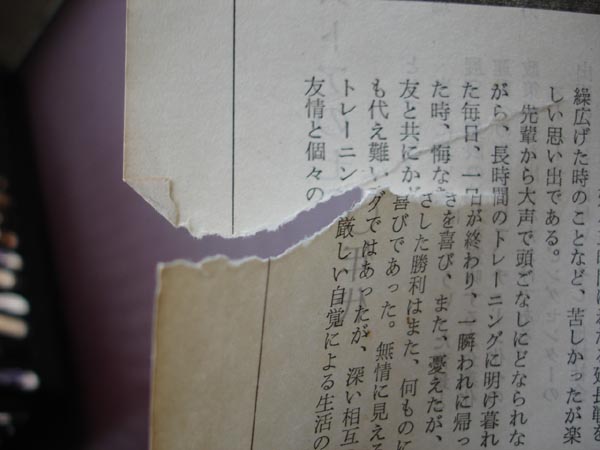 繰広げた時のことなど、苦しかったが楽
しい思い出である。
先輩から大声で頭ごなしにどなられな
がら、長時間のトレーニングに明け暮れ
た毎日、一日が終わり、一瞬われに帰っ
た時、悔なきを喜び、また、憂えたが、
友と共にかざした勝利はまた、何ものに
も代え難い喜びであった。無情に見える
トレーニングではあったが、深い相互
友情と個々の厳しい自覚による生活の